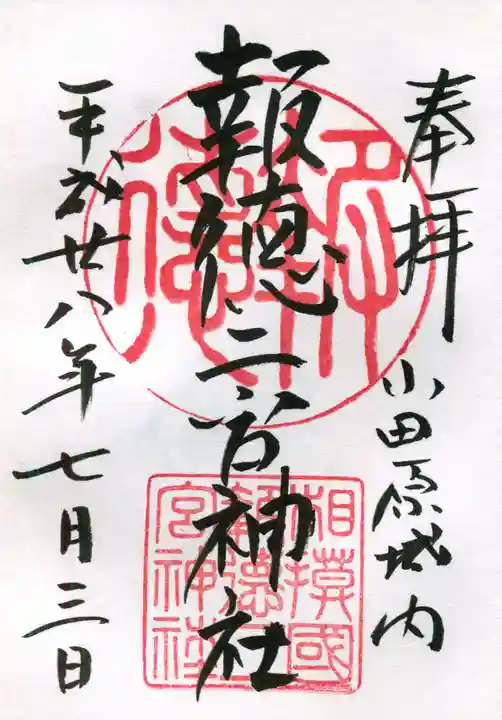 奉拝 小田原城内
報徳二宮神社
平成廿八年七月三日
相模國
報徳二
宮神社